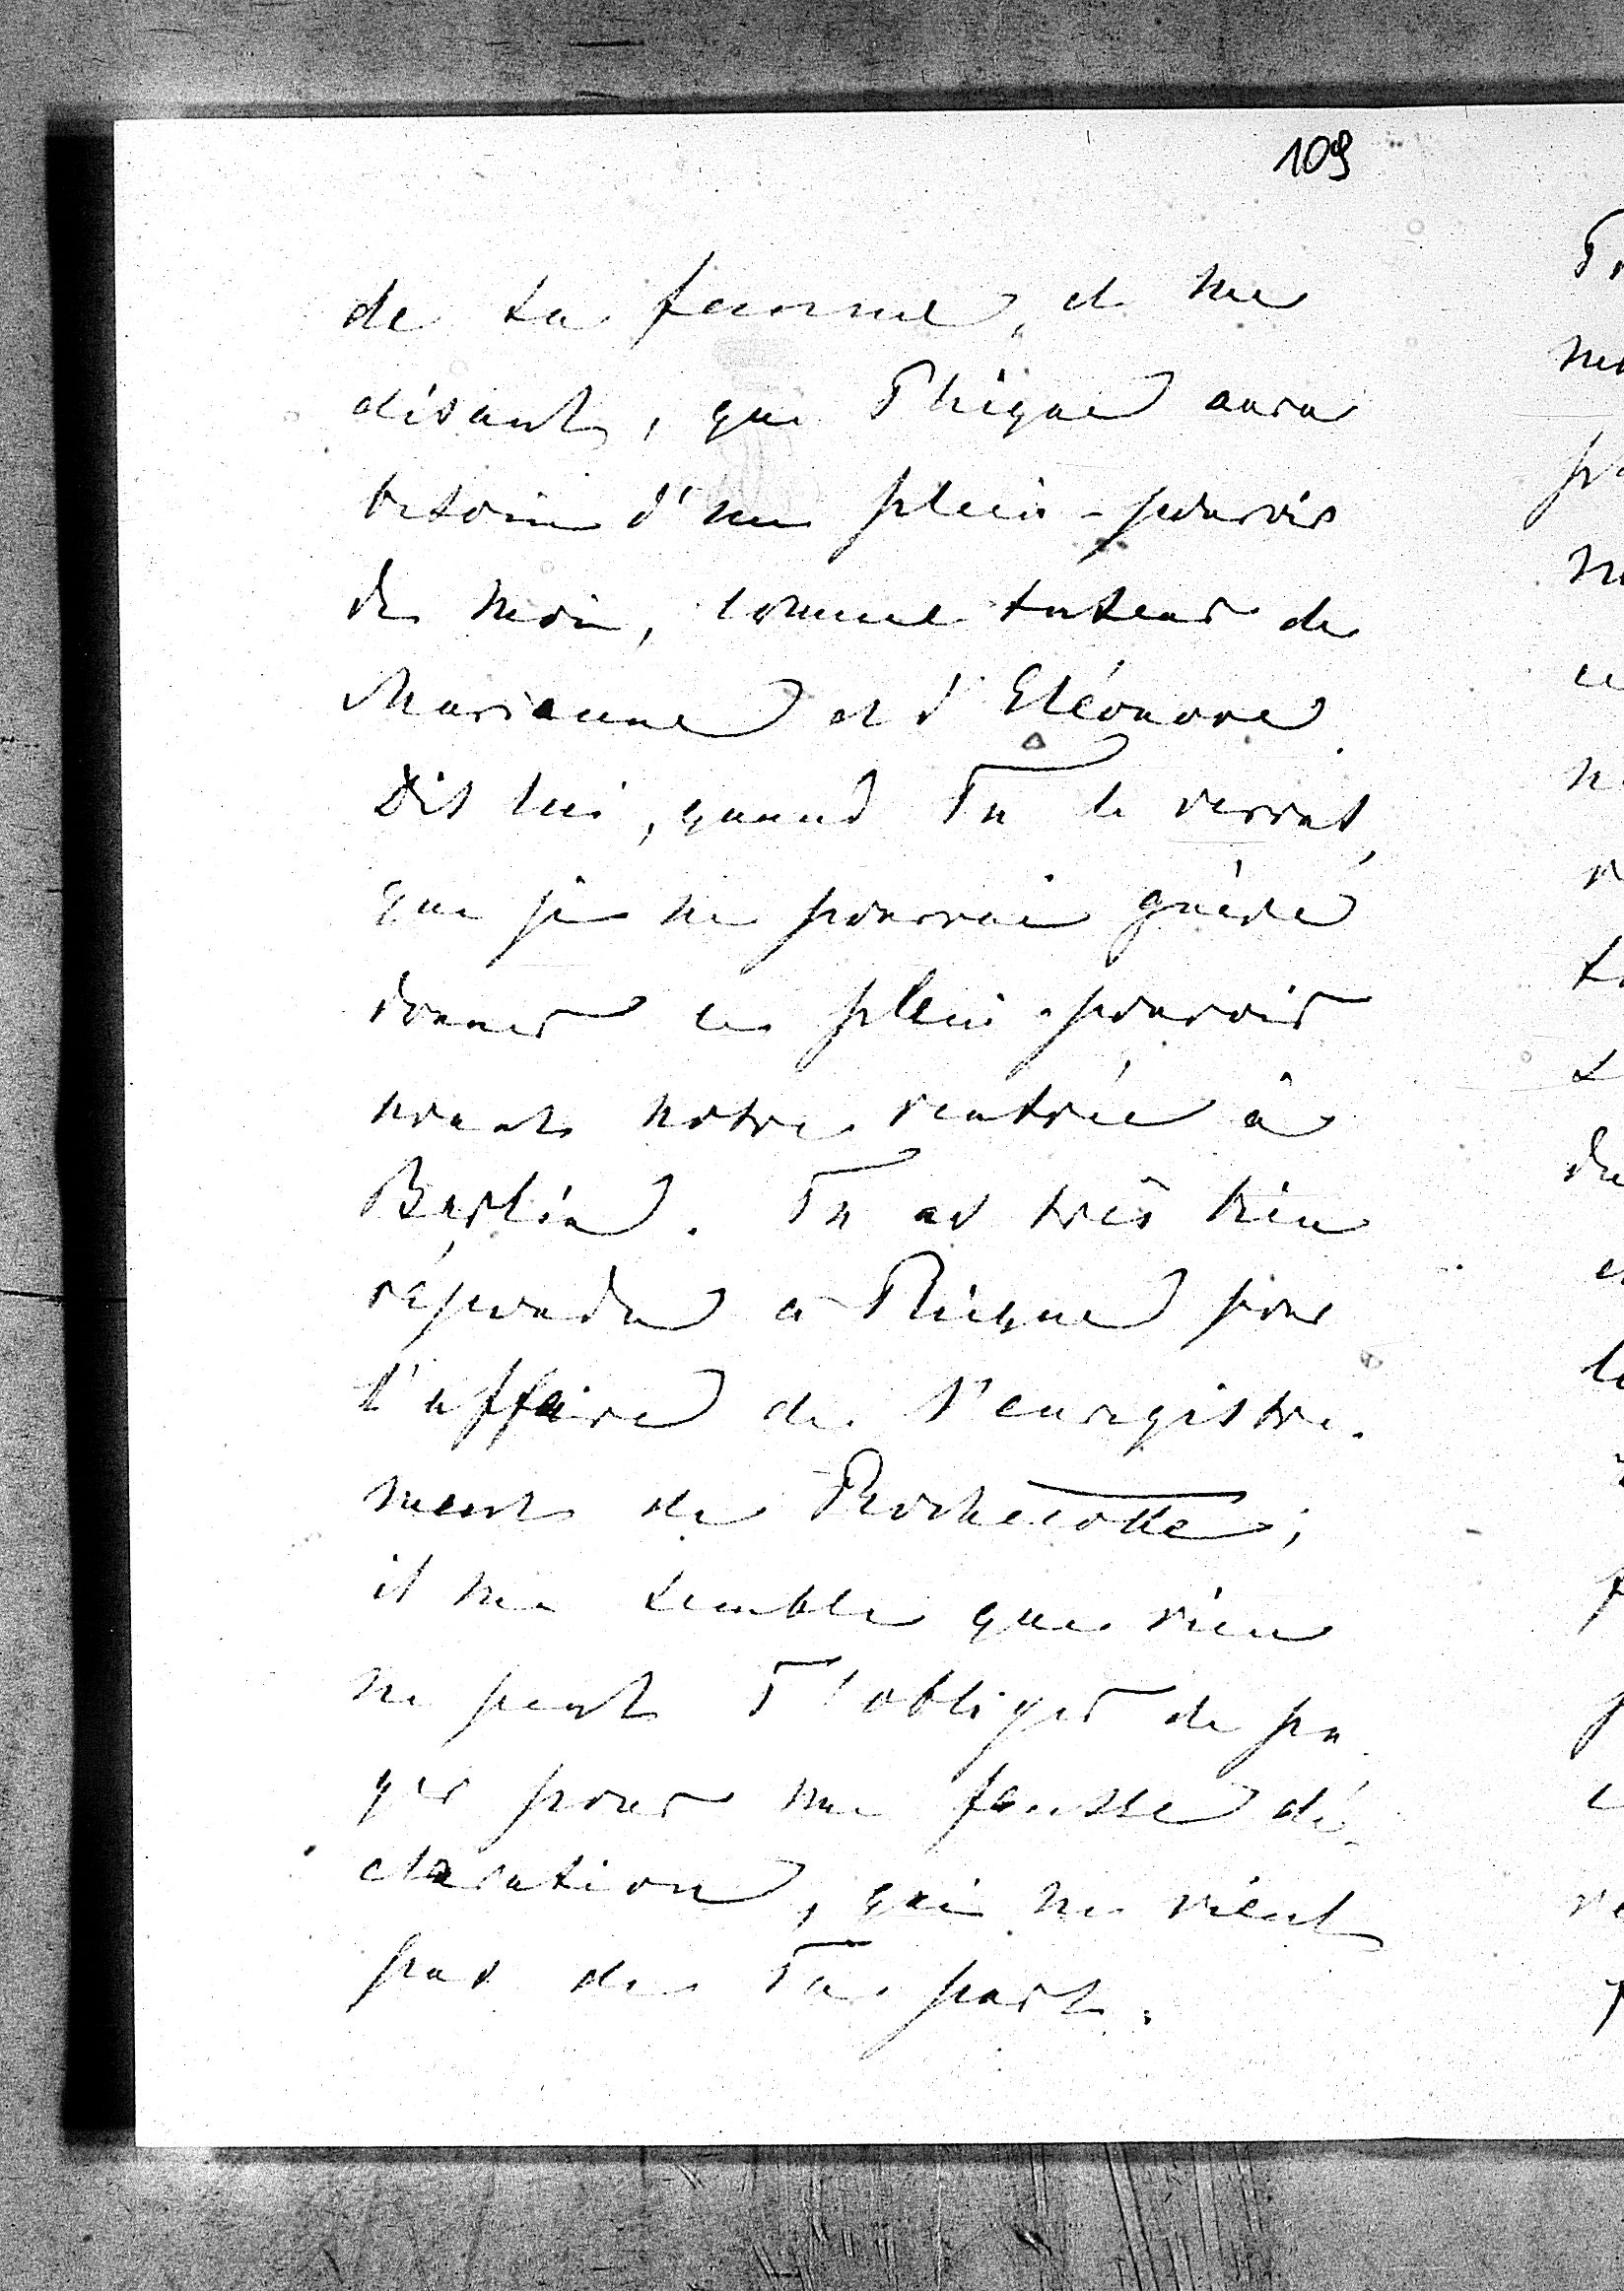 109
de sa femme, et me
disant, que Phique aura
besoin d'un plein-pouvoir
de moi, comme tuteur de
Marianne et d'Eléonore.
Dis lui, quand Tu le verras,
que je ne pourrai guère
donner ce plein-pouvoir
avant notre rentrée à
Berlin. Tu as très bien
répondu à Phique pour
l'affaire de l'enregistre-
ment de Rochecotte;
il me semble que rien
ne peut T'obliger de pa-
yer pour une fausse dé-
claration, qui ne vient
pas de Ta part.